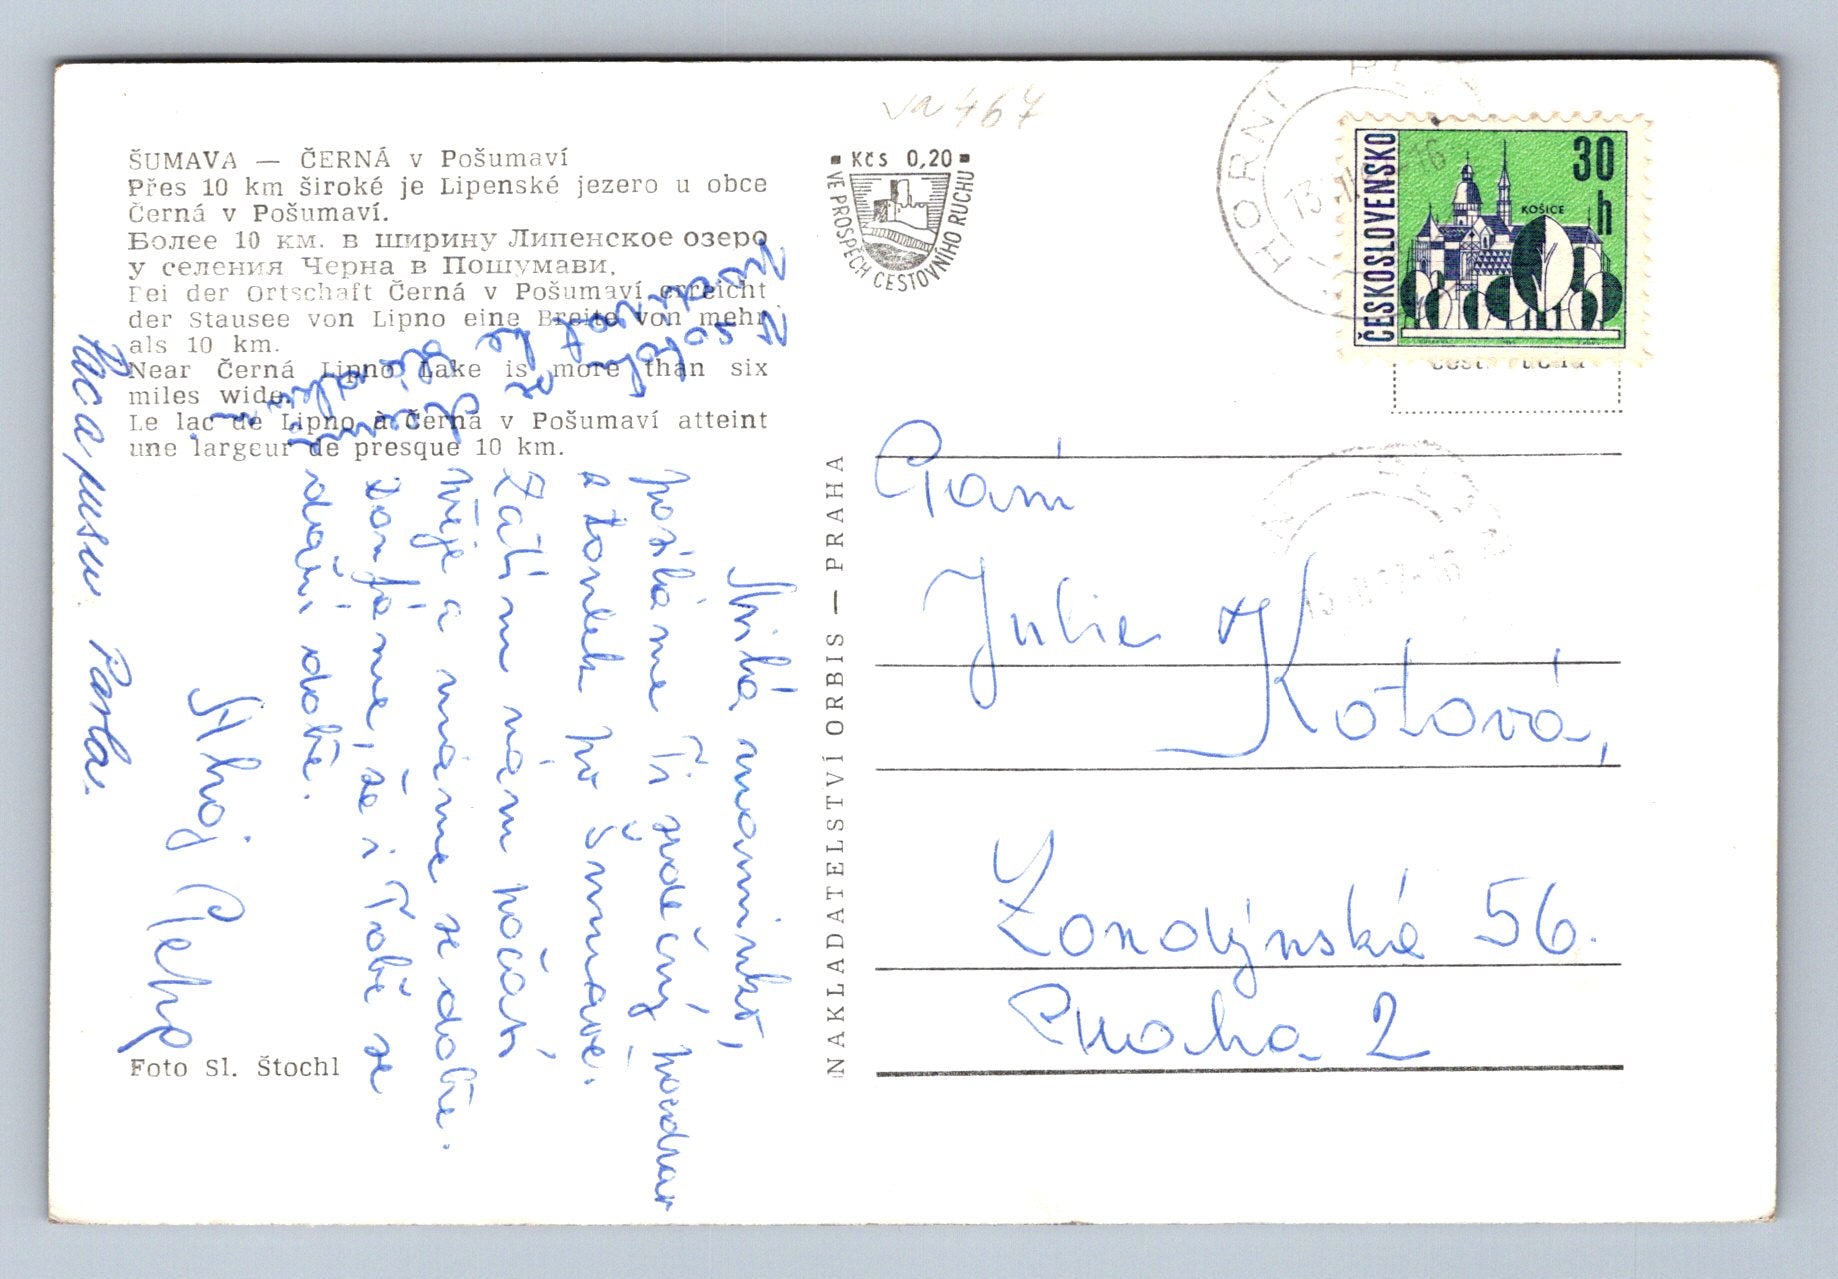 va 467
ŠUMAVA — ČERNÁ v Pošumaví
Přes 10 km široké je Lipenské jezero u obce
Černá v Pošumaví.
Более 10 км. в ширину Липенское озеро
у селения Черна в Пошумави.
Bei der Ortschaft Černá v Pošumaví erreicht
der Stausee von Lipno eine Breite von mehr
als 10 km.
Near Černá Lipno Lake is more than six
miles wide.
Le lac de Lipno à Černá v Pošumaví atteint
une largeur de presque 10 km.
Kčs 0,20
VE PROSPĚCH CESTOVNÍHO RUCHU
HORNÍ
13
16
ČESKOSLOVENSKO
30
h
KOŠICE
cest. ruchu
Milá maminko,
posíláme Ti srdečný pozdrav
z toulek po Šumavě.
Zatím nám počasí
přeje a máme se dobře.
Doufáme, že i Tobě se
daří dobře.
Ahoj Pepa
V sobotu se
Pac a pusu Pavla.
Foto Sl. Štochl
NAKLADATELSTVÍ ORBIS — PRAHA
Paní
Julie
Kotová,
Londýnská 56.
Praha 2